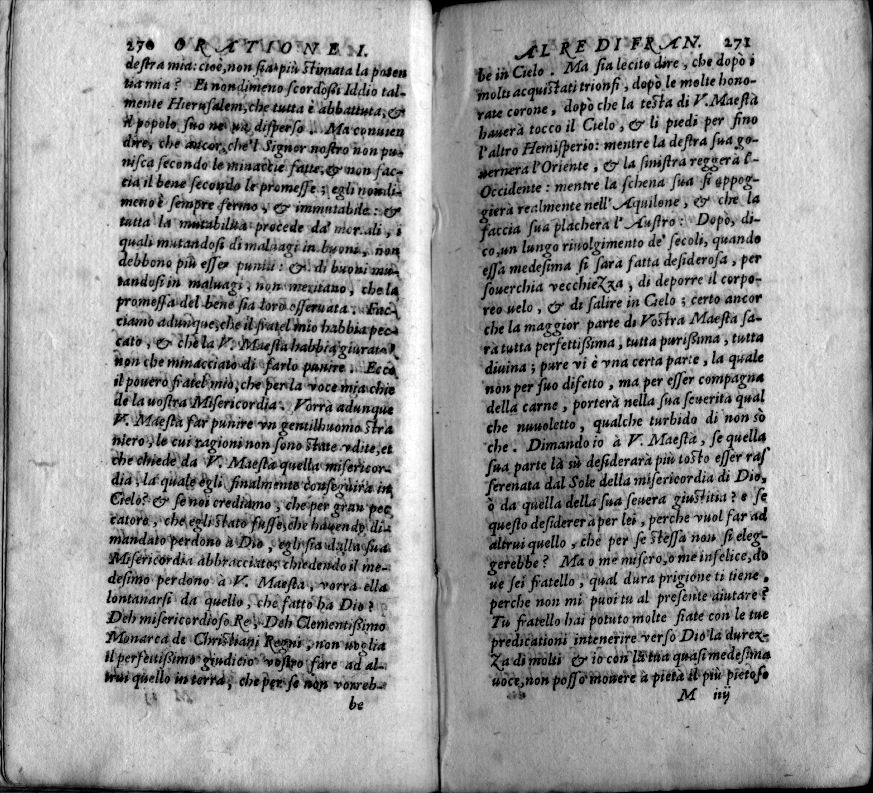 270 ORATIONE I.
destra mia: cioè, non sia più stimata la poten
tia mia? Et nondimeno scordossi Iddio tal-
mente Hierusalem, che tutta è abbattuta, &
il popolo suo ne và disperso. Ma conuien
dire, che ancor, che'l Signor nostro non pu-
nisca secondo le minaccie fatte, & non fac-
cia il bene secondo le promesse; egli nondi-
meno è sempre fermo, & immutabile: &
tutta la mutabilità procede da' mortali, i
quali mutandosi di maluagi in buoni, non
debbono più esser puniti: & di buoni mu-
tandosi in maluagi, non meritano, che la
promessa del bene sia loro osseruata. Fac-
ciamo adunque, che il fratel mio habbia pec-
cato, & che la V. Maestà habbia giurato,
non che minacciato di farlo punire. Ecco
il pouero fratel mio, che per la voce mia chie
de la uostra Misericordia. Vorrà adunque
V. Maestà far punire vn gentilhuomo stra
niero, le cui ragioni non sono state vdite, et
che chiede da V. Maestà quella misericor-
dia, la quale egli finalmente conseguirà in
Cielo? & se noi crediamo, che per gran pec
catore, che egli stato fusse, che hauendo di-
mandato perdono à Dio, egli sia dalla sua
Misericordia abbracciato; chiedendo il me-
desimo perdono à V. Maestà, vorrà ella
lontanarsi da quello, che fatto ha Dio?
Deh misericordioso Re, Deh Clementissimo
Monarca de Christiani Regni, non uoglia
il perfettissimo giudicio vostro fare ad al-
trui quello in terra, che per se non vorreb-
be
AL RE DI FRAN. 271
be in Cielo. Ma sia lecito dire, che dopò i
molti acquistati trionfi, dopò le molte hono-
rate corone, dopò che la testa di V. Maestà
hauerà tocco il Cielo, & li piedi per fino
l'altro Hemisperio: mentre la destra sua go-
uernerà l'Oriente, & la sinistra reggerà l'-
Occidente: mentre la schena sua si appog-
gierà realmente nell'Aquilone, & che la
faccia sua placherà l'Austro: Dopò, di-
co, un lungo riuolgimento de' secoli, quando
essa medesima si sarà fatta desiderosa, per
souerchia vecchiezza, di deporre il corpo-
reo uelo, & di salire in Cielo; certo ancor
che la maggior parte di Vostra Maestà sa-
rà tutta perfettissima, tutta purissima, tutta
diuina; pure vi è vna certa parte, la quale
non per suo difetto, ma per esser compagna
della carne, porterà nella sua seuerità qual
che nuuoletto, qualche turbido di non sò
che. Dimando io à V. Maestà, se quella
sua parte là sù desidererà più tosto esser ras
serenata dal Sole della misericordia di Dio,
ò da quella della sua seuera giustitia? e se
questo desidererà per lei, perche vuol far ad
altrui quello, che per se stessa non si eleg-
gerebbe? Ma o me misero, o me infelice, do
ue sei fratello, qual dura prigione ti tiene,
perche non mi puoi tu al presente aiutare?
Tu fratello hai potuto molte fiate con le tue
predicationi intenerire verso Dio la durez-
za di molti & io con la tua quasi medesima
uoce, non posso mouere à pietà il più pietoso
M iiij